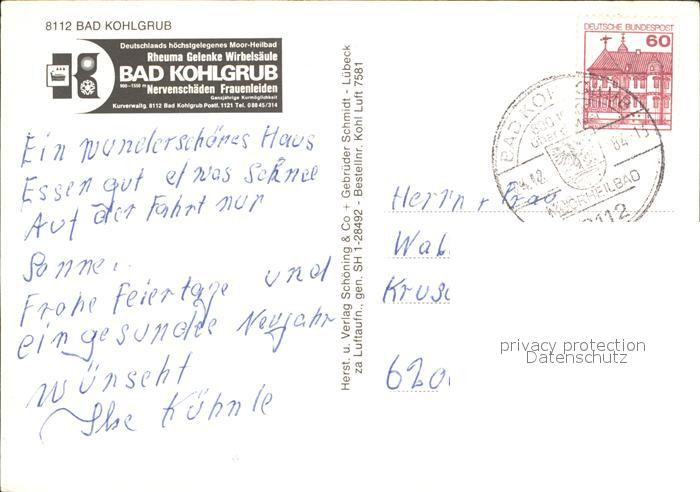 8112 BAD KOHLGRUB
Deutschlands höchstgelegenes Moor-Heilbad
Rheuma Gelenke Wirbelsäule
BAD KOHLGRUB
900–1550 m
Nervenschäden Frauenleiden
Ganzjährige Kurmöglichkeit
Kurverwaltg. 8112 Bad Kohlgrub Postf. 1121 Tel. 08845/314
Ein wunderschönes Haus
Essen gut etwas Schnee
Auf der Fahrt nur
Sonne..
Frohe Feiertage und
ein gesundes Neujahr
wünscht
Ilse Kühnle
Herst. u. Verlag Schöning & Co + Gebrüder Schmidt - Lübeck
za Luftaufn., gen. SH 1-28492 - Bestellnr. Kohl Luft 7581
DEUTSCHE BUNDESPOST
60
BAD KOHLGRUB
84.-13
MOORHEILBAD
8112
Herrn + Frau
Wab
Krus
620
privacy protection
Datenschutz